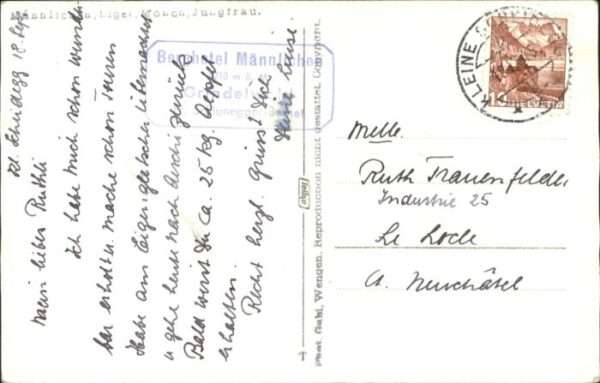 Männlichen, Eiger, Mönch, Jungfrau.
Kl. Scheidegg 12. Sept
Mein liebes Ruthli
Ich habe mich schon wunder-
bar erholt u. mache schon Touren
Habe am Eigergletscher übernachtet
u gehe heute nach zurück
Bald wirst Du ca. 25 kg. Äpfel
erhalten.
Recht herzl. Grüss Dich
Deine Luise
Berghotel Männlichen
Grindelwald
Phot. Gabi, Wengen. Reproduction nicht gestattet. Copyright.
KLEINE SCHEIDEGG
HELVETIA
Melle.
Ruth Frauenfelder
Industrie 25
Le Locle
Ct. Neuchâtel